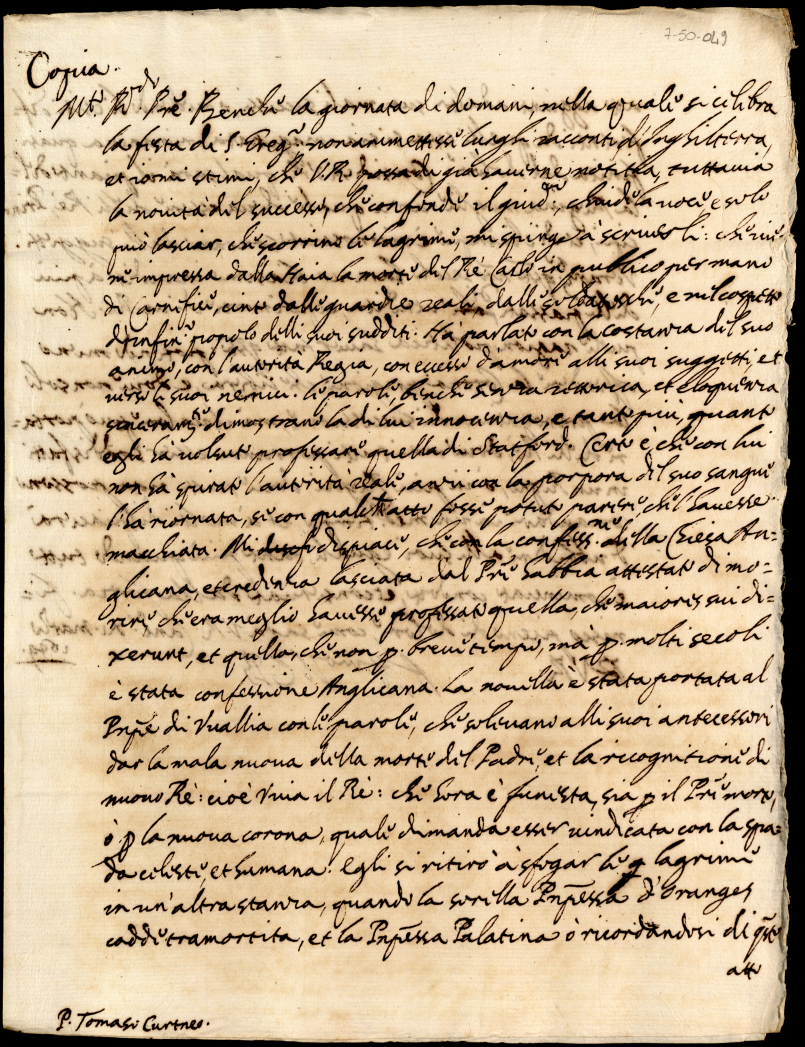 7-50-049
Copia.
M.to R.do P.re Benche la giornata di domani, nella quale si celebra
la festa di S. Greg.o non ammettesse lunghi racconti d'Inghilterra,
et io mi stimi, che V.R. possa di gia haverne notitia, tuttavia
la novità del successo, che confonde il giud.o, chiude la voce e solo
può lasciar, che scorrino le lagrime, mi spinge à scriverli: che vie-
ne impressa dalla Haia la morte del Rè Carlo in publico per mano
di Carnefice, cinto dalle guardie reali, dalle soldatesche, e nel cospetto
d'infin.o popolo delli suoi sudditi. Hà parlato con la costanza del suo
animo, con l'autorità Regia, con eccesso d'amore alli suoi suggetti, et
verso li suoi nemici. le parole, benche senza rettorica, et eloquenza
sinceram.te dimostrano la di lui innocenza, e tanto più, quanto
egli hà voluto professare quella di Statford. Certo è che con lui
non hà spirato l'autorità reale, anzi con la porpora del suo sangue
l'hà riornata, se con qualche atto fosse potuto parere, che l'havesse
macchiata. Mi dispiace, che con la confess.ne della Chiesa An=
glicana, et credenza lasciata dal P.re habbia attestato di mo=
rire, che era meglio havesse professato quella, che maiores sui di=
xerunt, et quella, che non p. breve tempo, mà p. molti secoli
è stata confessione Anglicana. La novella è stata portata al
Pnpe di Vuallia con le parole, che solevano alli suoi antecessori
dar la mala nuova della morte del Padre, et la ricognitione di
nuovo Rè: cioè Viva il Rè: che hora è funesta, sia p il P.re morto,
ò p la nuova corona, quale dimanda esser vindicata con la spa=
da celeste, et humana. Egli si ritirò à sfogar le lagrime
in un'altra stanza, quando la sorella Pnpessa d'Oranges
cadde tramortita, et la Pnpessa Palatina ò ricordandosi di qsto
atto
P. Tomaso Curtneo.